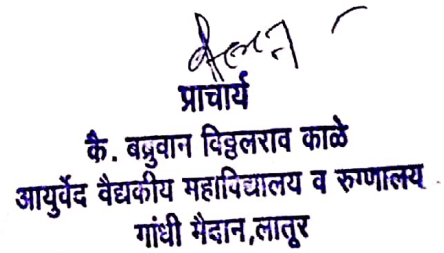 प्राचार्य
कै. बब्रुवान विठ्ठलराव काळे
आयुर्वेद वैद्यकीय महाविद्यालय व रुग्णालय
गांधी मैदान,लातूर